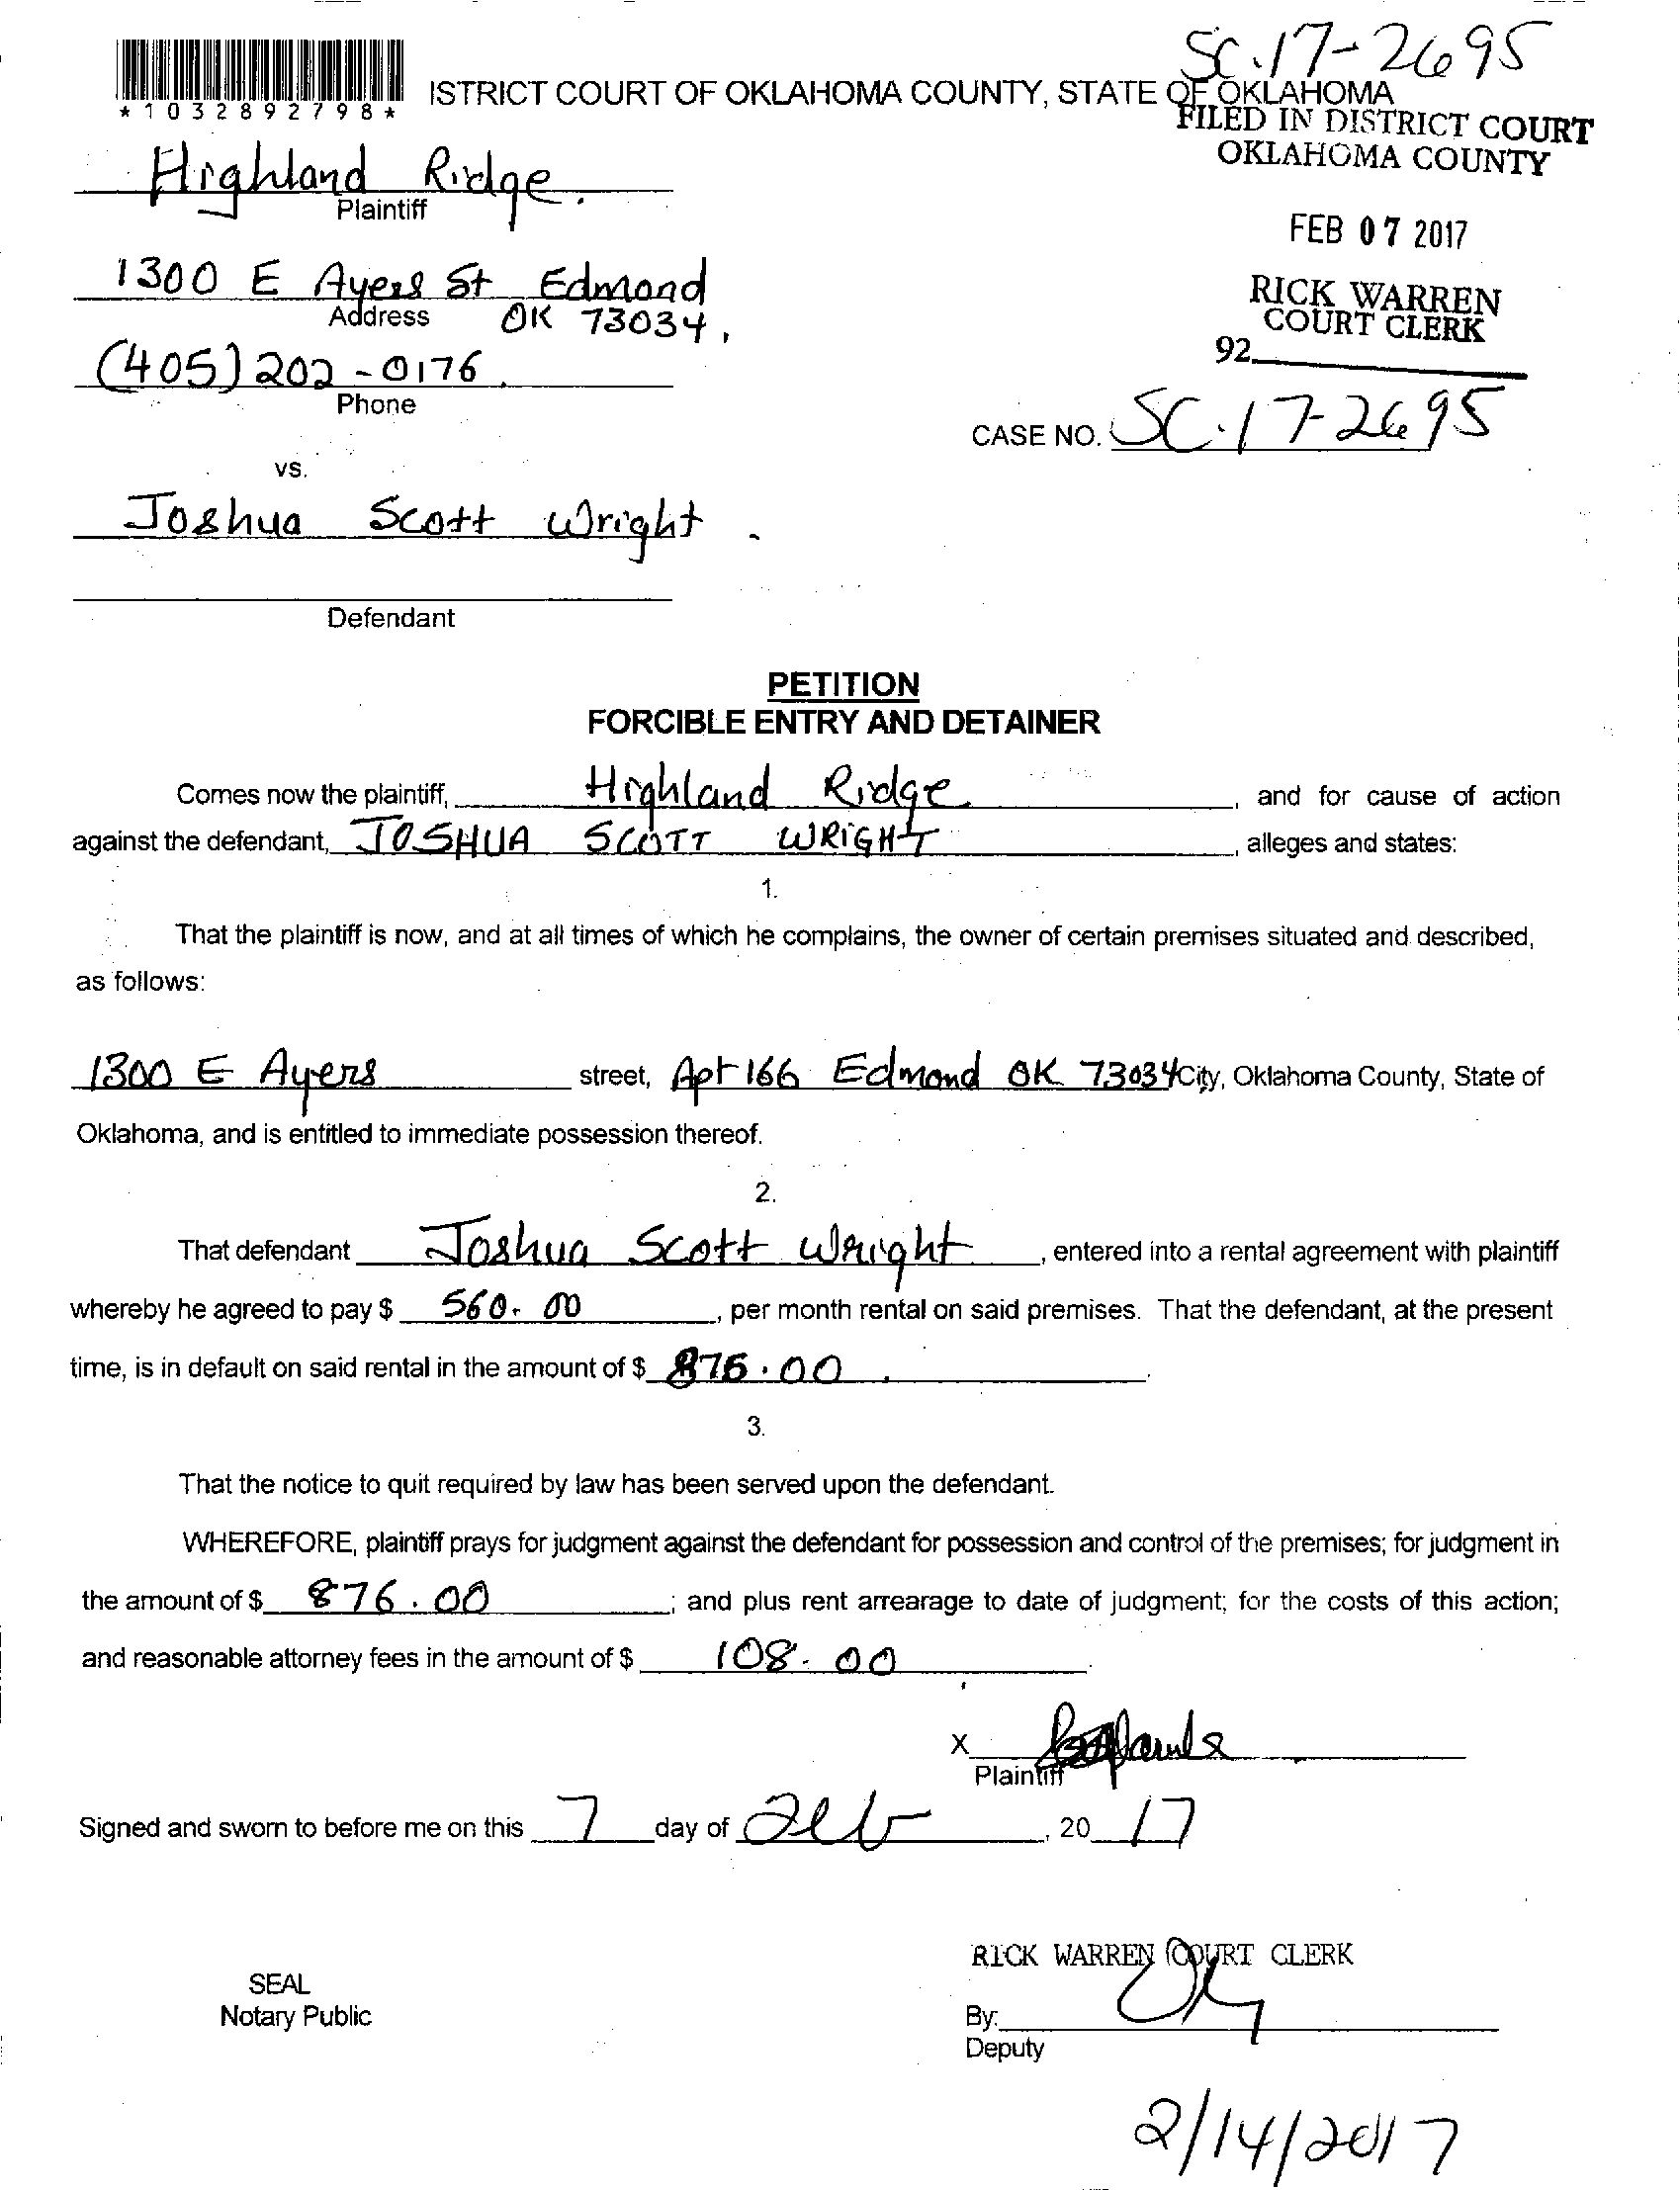 SC.17-2695
*1032892798*
ISTRICT COURT OF OKLAHOMA COUNTY, STATE OF OKLAHOMA
FILED IN DISTRICT COURT
OKLAHOMA COUNTY
Highland Ridge.
Plaintiff
FEB 07 2017
1300 E Ayers St Edmond
Address OK 73034,
RICK WARREN
COURT CLERK
92
(405) 202-0176.
Phone
CASE NO. SC.17-2695
vs.
Joshua Scott Wright.
Defendant
PETITION
FORCIBLE ENTRY AND DETAINER
Comes now the plaintiff, Highland Ridge, and for cause of action
against the defendant, JOSHUA SCOTT WRIGHT, alleges and states:
1.
That the plaintiff is now, and at all times of which he complains, the owner of certain premises situated and described,
as follows:
1300 E Ayers street, Apt 166 Edmond OK 73034 City, Oklahoma County, State of
Oklahoma, and is entitled to immediate possession thereof.
2.
That defendant Joshua Scott Wright, entered into a rental agreement with plaintiff
whereby he agreed to pay $ 560.00, per month rental on said premises. That the defendant, at the present
time, is in default on said rental in the amount of $ 876.00.
3.
That the notice to quit required by law has been served upon the defendant.
WHEREFORE, plaintiff prays for judgment against the defendant for possession and control of the premises; for judgment in
the amount of $ 876.00; and plus rent arrearage to date of judgment; for the costs of this action;
and reasonable attorney fees in the amount of $ 108.00.
X
Plaintiff
Signed and sworn to before me on this 7 day of Feb, 20 17
RICK WARREN COURT CLERK
SEAL
Notary Public
By:
Deputy
2/14/2017